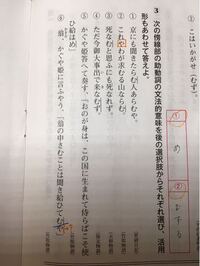 ① こはいかがせ（むず）
3 次の傍線部の助動詞の文法的意味を後の選択肢からそれぞれ選び、活用
形もあわせて答えよ。
① 京にも聞きたらむ人あらむや。
② これやわが求むる山ならむ。
③ 死なむと思ふにも死なれず。
④ ただ今御大事出で来なむず。
⑤ かぐや姫答へて奏す、「おのが身は、この国に生まれて侍らばこそ使
ひ給はめ」
⑥ 翁、かぐや姫に言ふやう、「翁の申さむことは聞き給ひてむや
① め
② むずる